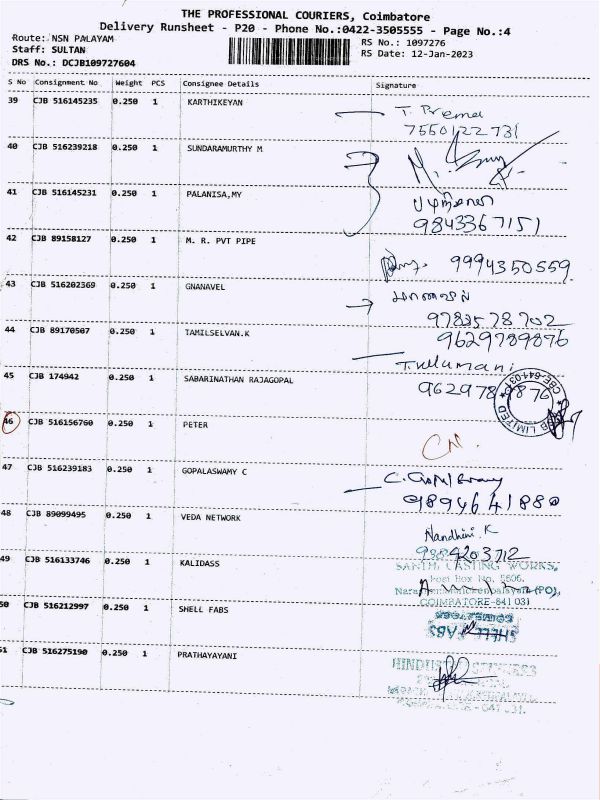 THE PROFESSIONAL COURIERS, Coimbatore
Delivery Runsheet - P20 - Phone No.:0422-3505555 - Page No.:4
Route: NSN PALAYAM
RS No.: 1097276
Staff: SULTAN
RS Date: 12-Jan-2023
DRS No.: DCJB109727604
S No Consignment No. Weight PCS Consignee Details Signature
39 CJB 516145235 0.250 1 KARTHIKEYAN
T. Prema
7550122731
40 CJB 516239218 0.250 1 SUNDARAMURTHY M
41 CJB 516145231 0.250 1 PALANISA,MY
9843367151
42 CJB 89158127 0.250 1 M. R. PVT PIPE
9994350559
43 CJB 516202369 0.250 1 GNANAVEL
44 CJB 89170507 0.250 1 TAMILSELVAN.K
9629789876
45 CJB 174942 0.250 1 SABARINATHAN RAJAGOPAL
46 CJB 516156760 0.250 1 PETER
CN.
47 CJB 516239183 0.250 1 GOPALASWAMY C
48 CJB 89099495 0.250 1 VEDA NETWORK
Nandhini. K
49 CJB 516133746 0.250 1 KALIDASS
CASTING WORKS,
Post Box No. 5606,
COIMBATORE-641 031
50 CJB 516212997 0.250 1 SHELL FABS
SHELL FABS
51 CJB 516275190 0.250 1 PRATHAYAYANI